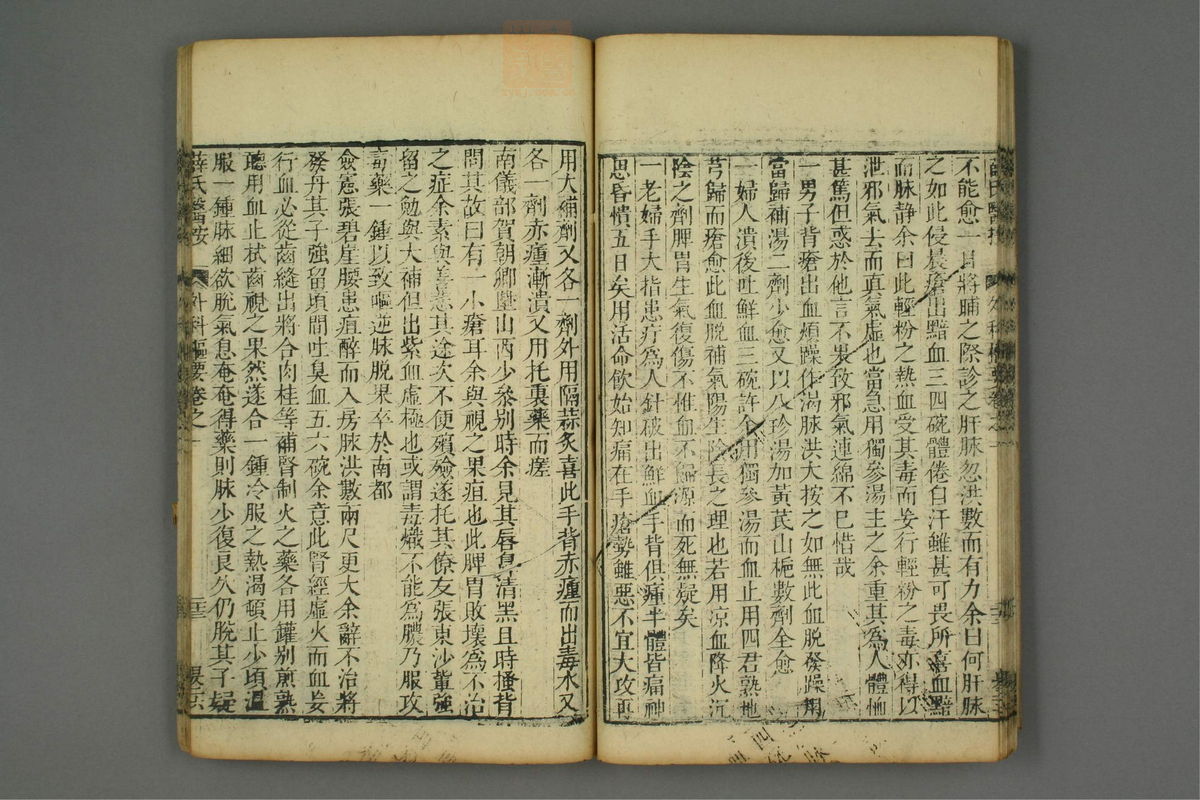 不能愈一日將晡之際診之肝脉忽洪數而有力余曰何肝脉
之如此侵晨瘡出黯血三四碗體倦自汗雖甚可畏所喜血黯
而脉静余曰此輕粉之熱血受其毒而妄行輕粉之毒亦得以
泄邪氣去而真氣虛也當急用獨參湯主之余重其為人體恤
甚篤但惑於他言不果致邪氣連綿不已惜哉
一男子背瘡出血煩躁作渴脉洪大按之如無此血脱發躁用
當歸補湯二劑少愈又以八珍湯加黃芪山梔數劑全愈
一婦人潰後吐鮮血三碗許余用獨參湯而血止用四君熟地
芎歸而瘡愈此血脱補氣陽生陰長之理也若用凉血降火沉
陰之劑脾胃生氣復傷不惟血不歸源而死無疑矣
一老婦手大指患疔為人針破出鮮血手背俱腫半體皆痛神
思昏憒五日矣用活命飲始知痛在手瘡勢雖惡不宜大攻再
用大補劑又各一劑外用隔蒜炙喜此手背赤腫而出毒水又
各一劑赤腫漸潰又用托裏藥而瘥
南儀部賀朝卿陞山西少叅别時余見其唇鼻清黑且時搔背
問其故曰有一小瘡耳余與視之果疽也此脾胃敗壞為不治
之症余素與善意其途次不便殯殮遂托其僚友張東沙輩強
留之勉與大補但出紫血虛極也或謂毒熾不能為膿乃服攻
毒藥一鍾以致嘔逆脉脱果卒於南都
僉憲張碧崖腰患疽醉而入房脉洪數兩尺更大余辭不治將
發丹其子強留頃間吐臭血五六碗余意此腎經虛火而血妄
行血必從齒縫出將合肉桂等補腎制火之藥各用罐别煎熟
聽用血止拭齒視之果然遂合一鍾冷服之熱渴頓止少頃溫
服一鍾脉細欲脱氣息奄奄得藥則脉少復良久仍脱其子疑
薛氏醫按 外科樞要卷之